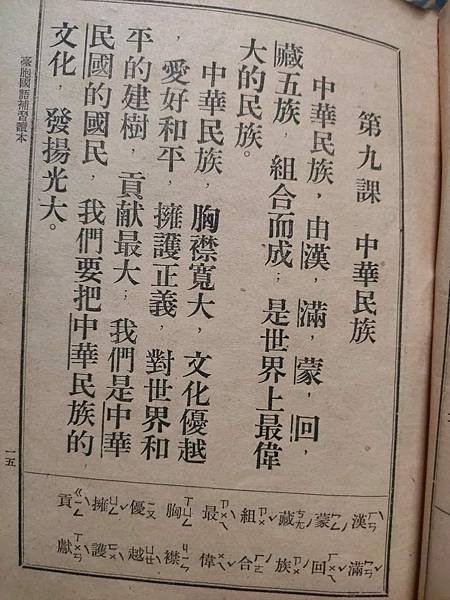 第九課　中華民族
中華民族，由漢，滿，蒙，回，
藏五族，組合而成；是世界上最偉
大的民族。
中華民族，胸襟寬大，文化優越
，愛好和平，擁護正義，對世界和
平的建樹，貢献最大；我們是中華
民國的國民，我們要把中華民族的
文化，發揚光大。
漢ㄏㄢˋ　滿ㄇㄢˇ
蒙ㄇㄥˊ　回ㄏㄨㄟˊ
藏ㄗㄤˋ　族ㄗㄨˊ
組ㄗㄨˇ　合ㄏㄜˊ
最ㄗㄨㄟˋ　偉ㄨㄟˇ
胸ㄒㄩㄥ　襟ㄐㄧㄣ
優ㄧㄡ　越ㄩㄝˋ
擁ㄩㄥˇ　護ㄏㄨˋ
貢ㄍㄨㄥˋ　獻ㄒㄧㄢˋ
臺胞國語補習讀本
一五